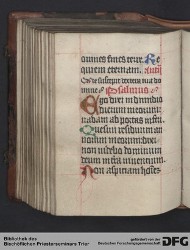 omnes fines terre. Re
quiem eternam. Anti
domine Psalmus
Ego dixi in dimidio
dierum meorum
vadam ad portas inferi
Quesivi residuum an
norum meorum dixi
non videbo dominum
deum in terra viventium
Non aspiciam homi
Bibliothek des
Bischöflichen Priesterseminars Trier
gefördert von der
Deutschen Forschungsgemeinschaft
DFG